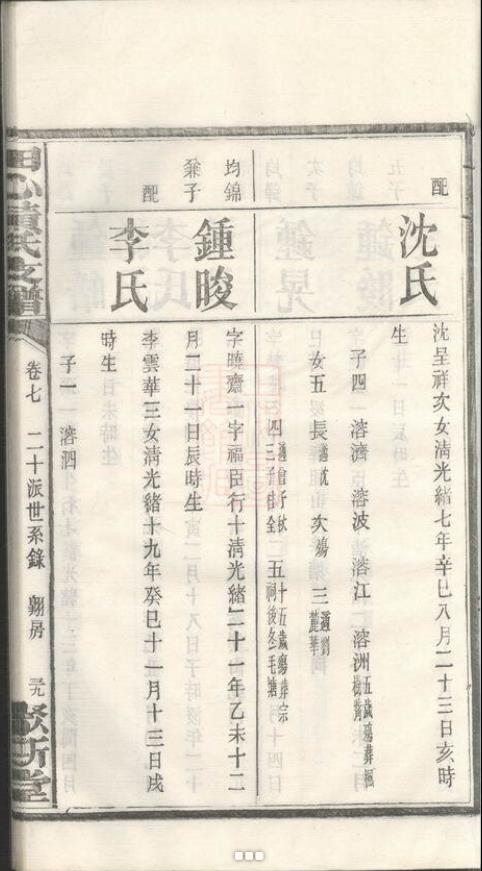 配
沈氏
沈呈祥次女清光緒七年辛巳八月二十三日亥時
生
子四 溶濟 溶波 溶江 溶洲五歲殤葬楓
女五 長適沈 次殤 三適劉
四 五十五歲殤葬宗祠後冬毛塘
均錦
兼子
鍾晙
字曉齋一字福臣行十清光緒二十一年乙未十二
月二十一日辰時生
配
李氏
李雲華三女清光緒十九年癸巳十一月十三日戌
時生
子一 溶泗
氏支譜
卷七 二十派世系錄 翺房 三九
敦所堂